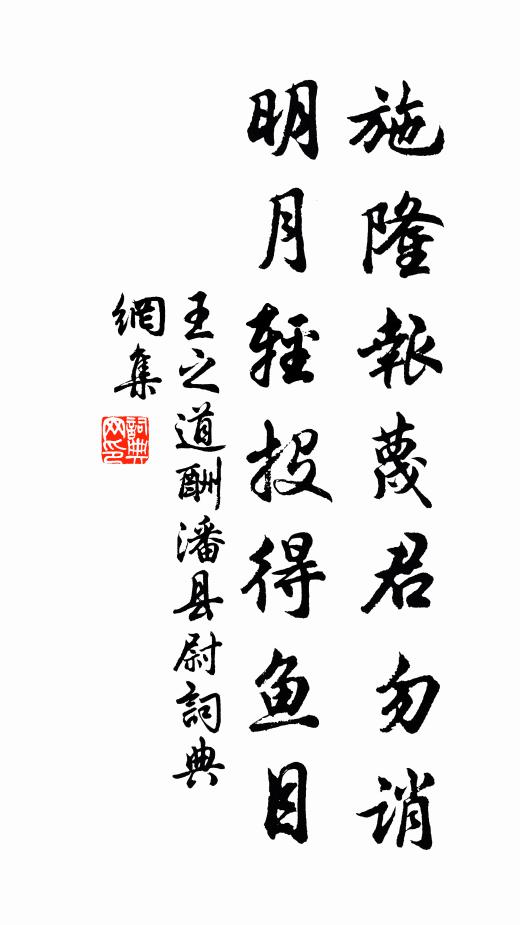 施隆報蔑君勿誚
明月輕投得鱼目
王之道酬潘县尉詞典
網集
詞典网印